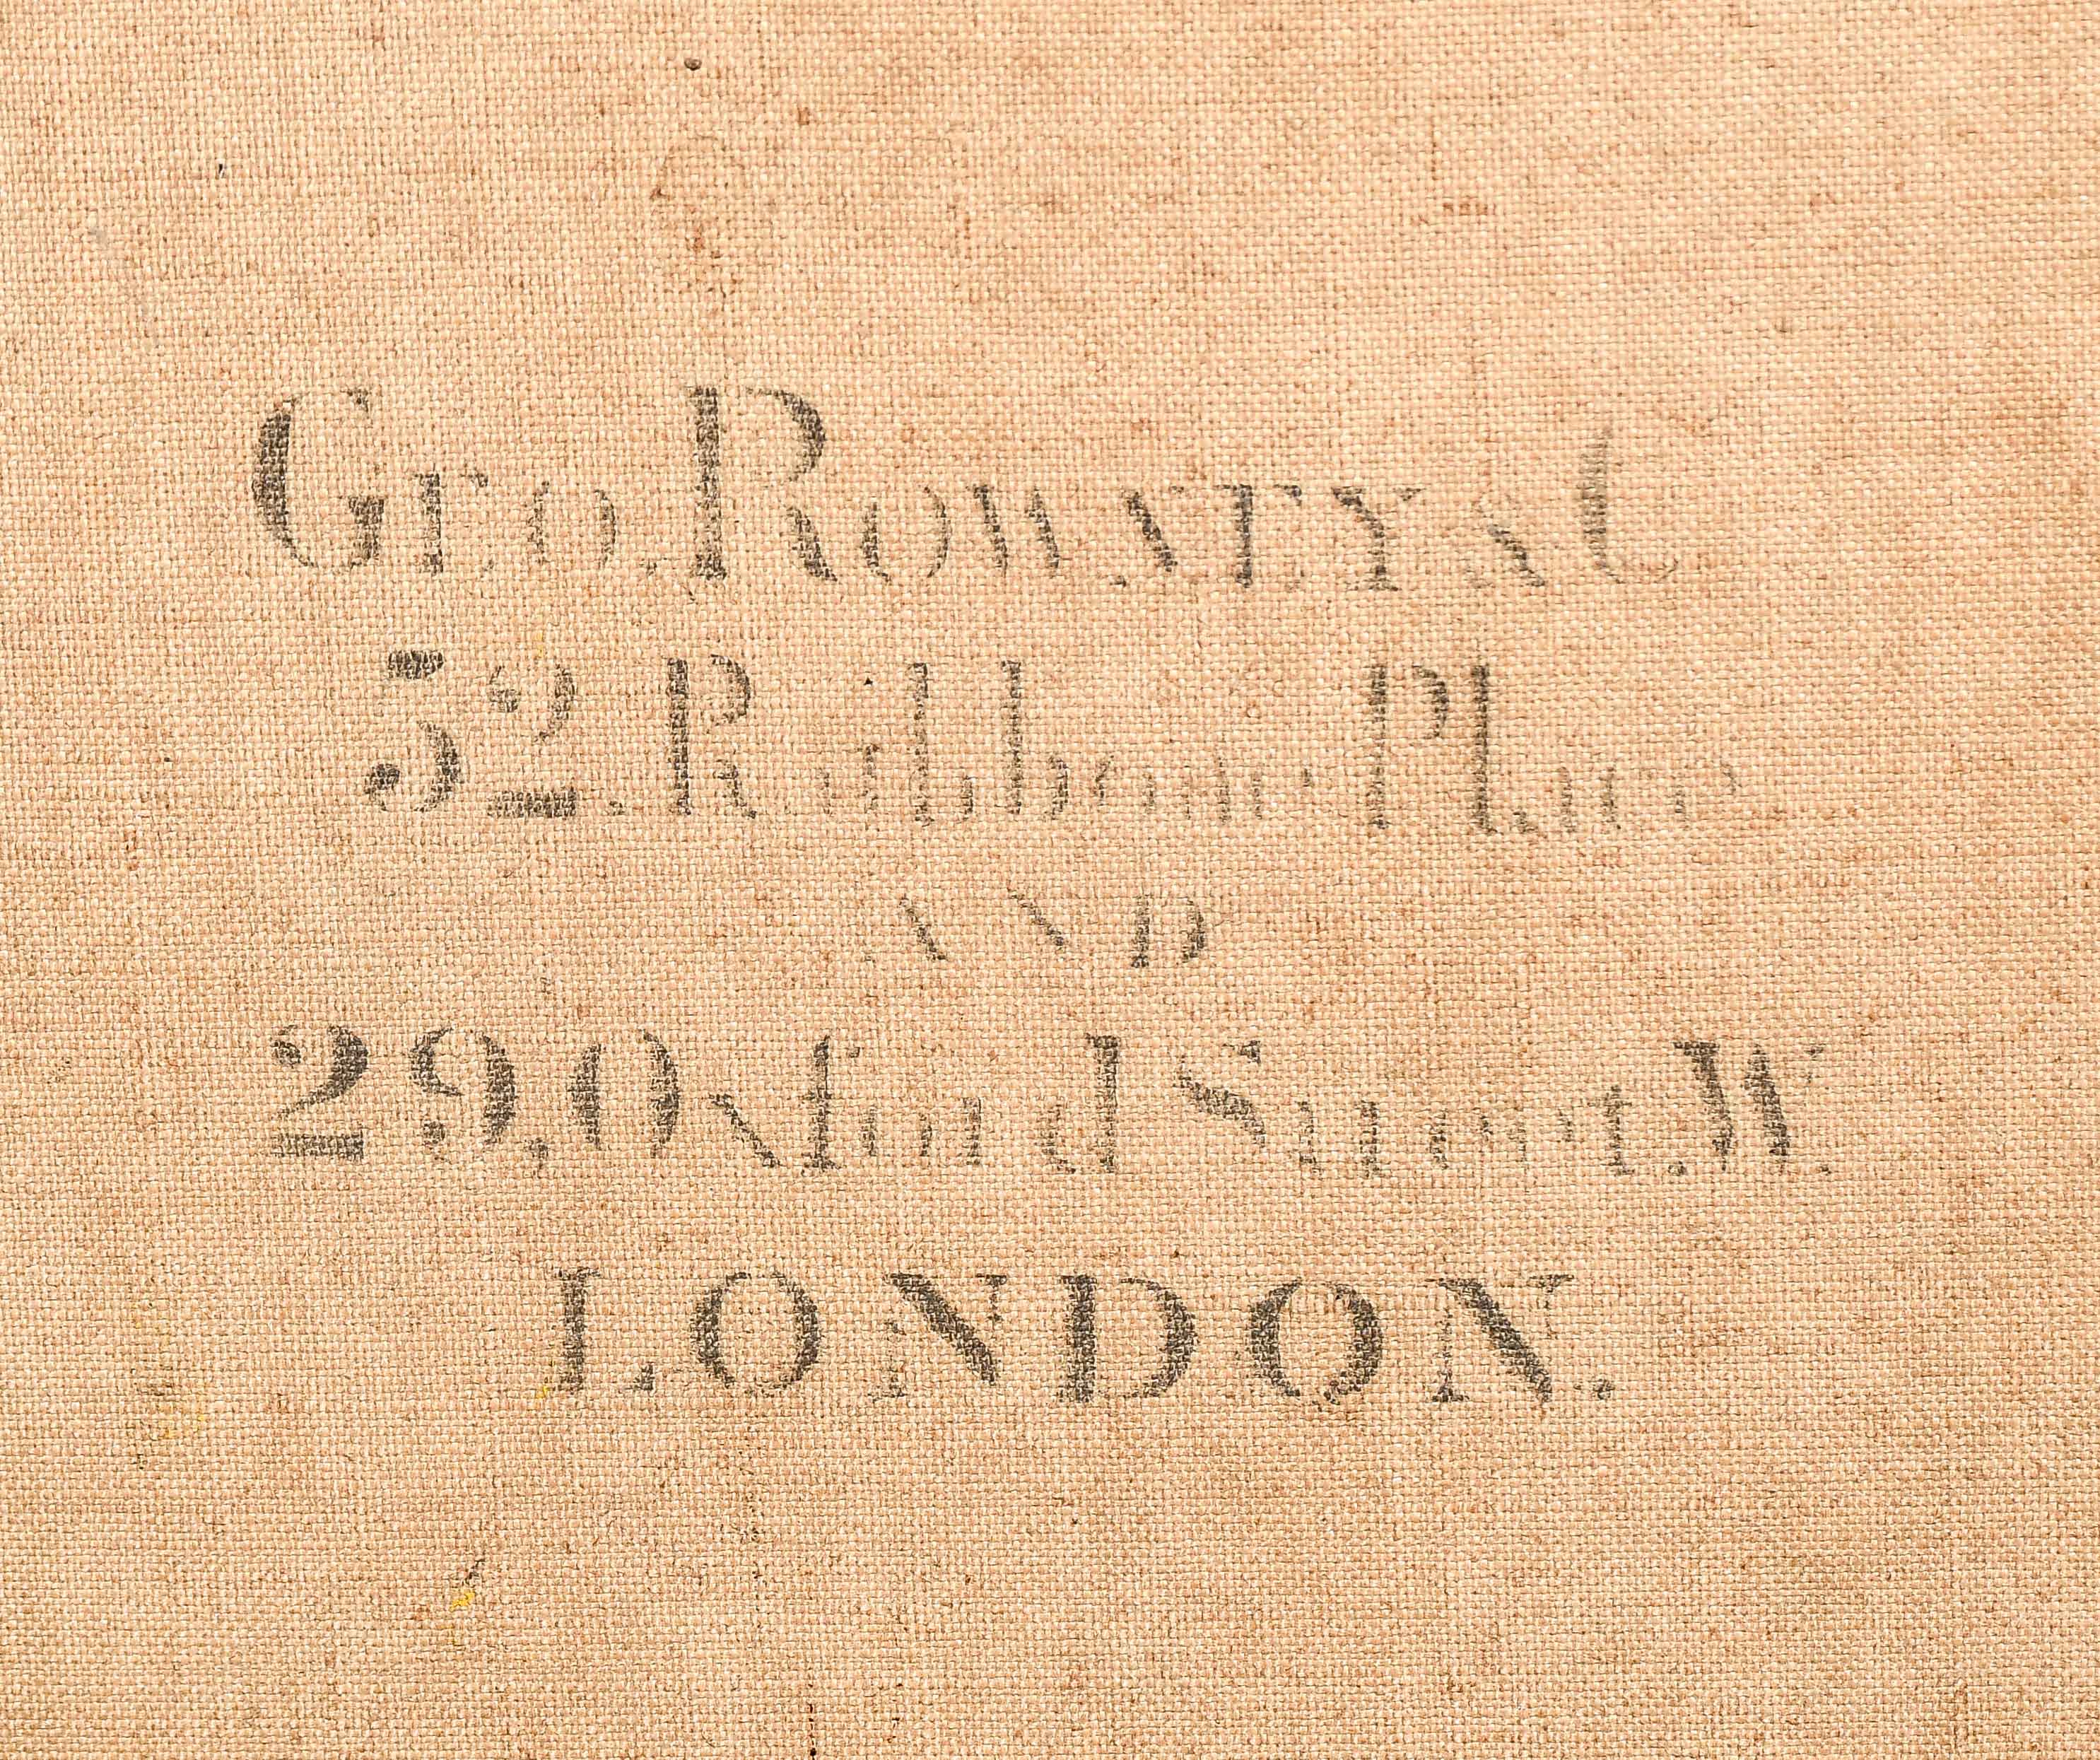 GEO. ROWNEY & C
52, Rathbone Place
AND
29, Oxford Street. W.
LONDON.